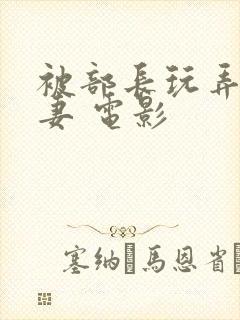 被部長玩弄
妻 電影
塞纳馬恩省